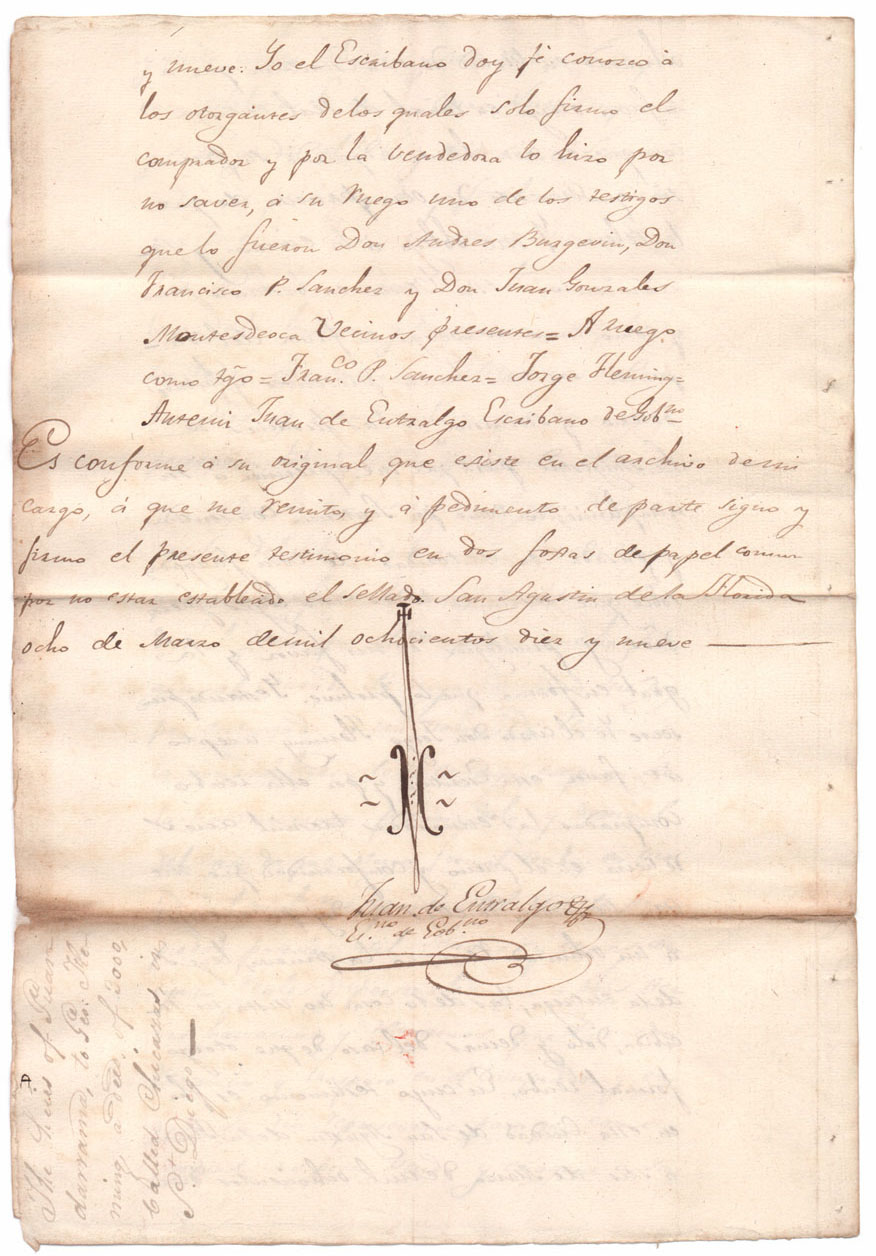 y nueve. Yo el Escribano doy fé conosco à
los otorgantes delos quales solo firmo el
comprador y por la vendedora lo hizo por
no saver, á su ruego uno de los testigos
que lo fueron Don Andres Burgevin, Don
Francisco P. Sanchez y Don Juan Gonzales
Montesdeoca Vecinos presentes = A ruego
como tgo = Fran.co P. Sanchez = Jorge Fleming =
Antemi Juan de Entralgo Escribano de Gobno
Es conforme á su original que existe en el archivo demi
cargo, á que me remito, y á pedimento de parte signo y
firmo el presente testimonio en dos foxas de papel comun
por no estar estableado el sellado. San Agustin de la Florida
ocho de Marzo demil ochocientos diez y nueve
Juan de Entralgo
Es.no de Gob.no
The heirs of Juan
to Geo: Fle-
ming, a deed of 3000
called Chucassas, in
St Diego
A.